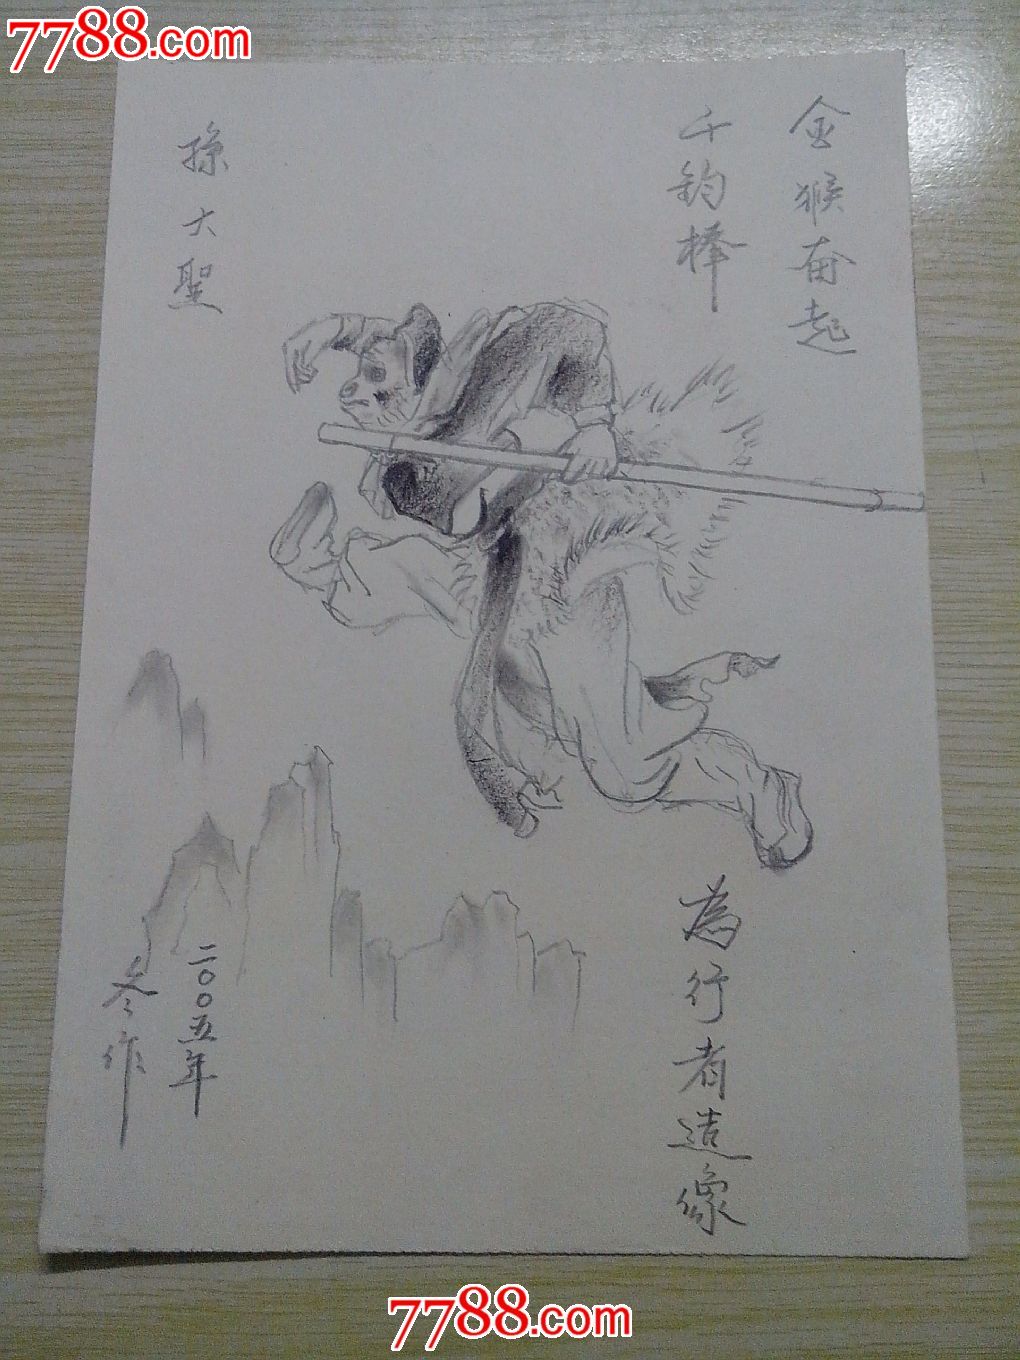 7788.com
金猴奋起
千钧棒
孫大聖
為行者造像
二〇〇五年
冬作
7788.com